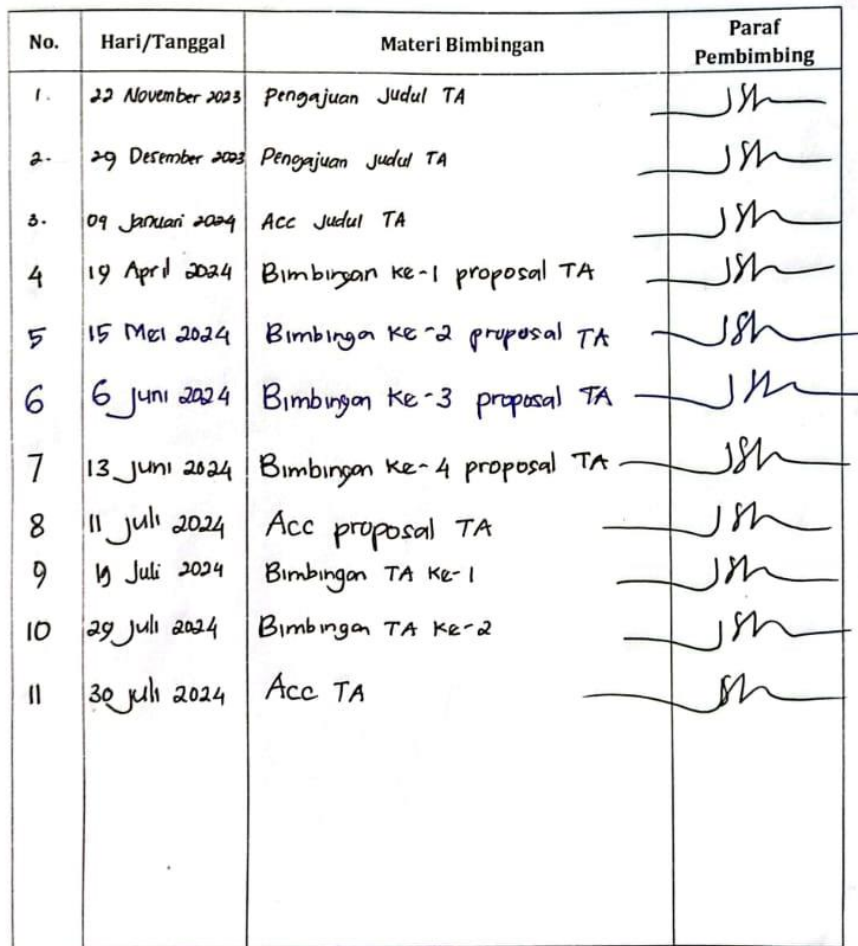 No. Hari/Tanggal Materi Bimbingan Paraf Pembimbing
1. 22 November 2023 Pengajuan Judul TA
2. 29 Desember 2023 Pengajuan Judul TA
3. 09 Januari 2024 Acc Judul TA
4 19 April 2024 Bimbingan Ke-1 proposal TA
5 15 Mei 2024 Bimbingan Ke-2 proposal TA
6 6 Juni 2024 Bimbingan Ke-3 proposal TA
7 13 Juni 2024 Bimbingan Ke-4 proposal TA
8 11 Juli 2024 Acc proposal TA
9 Juli 2024 Bimbingan TA Ke-1
10 29 Juli 2024 Bimbingan TA Ke-2
11 30 Juli 2024 Acc TA